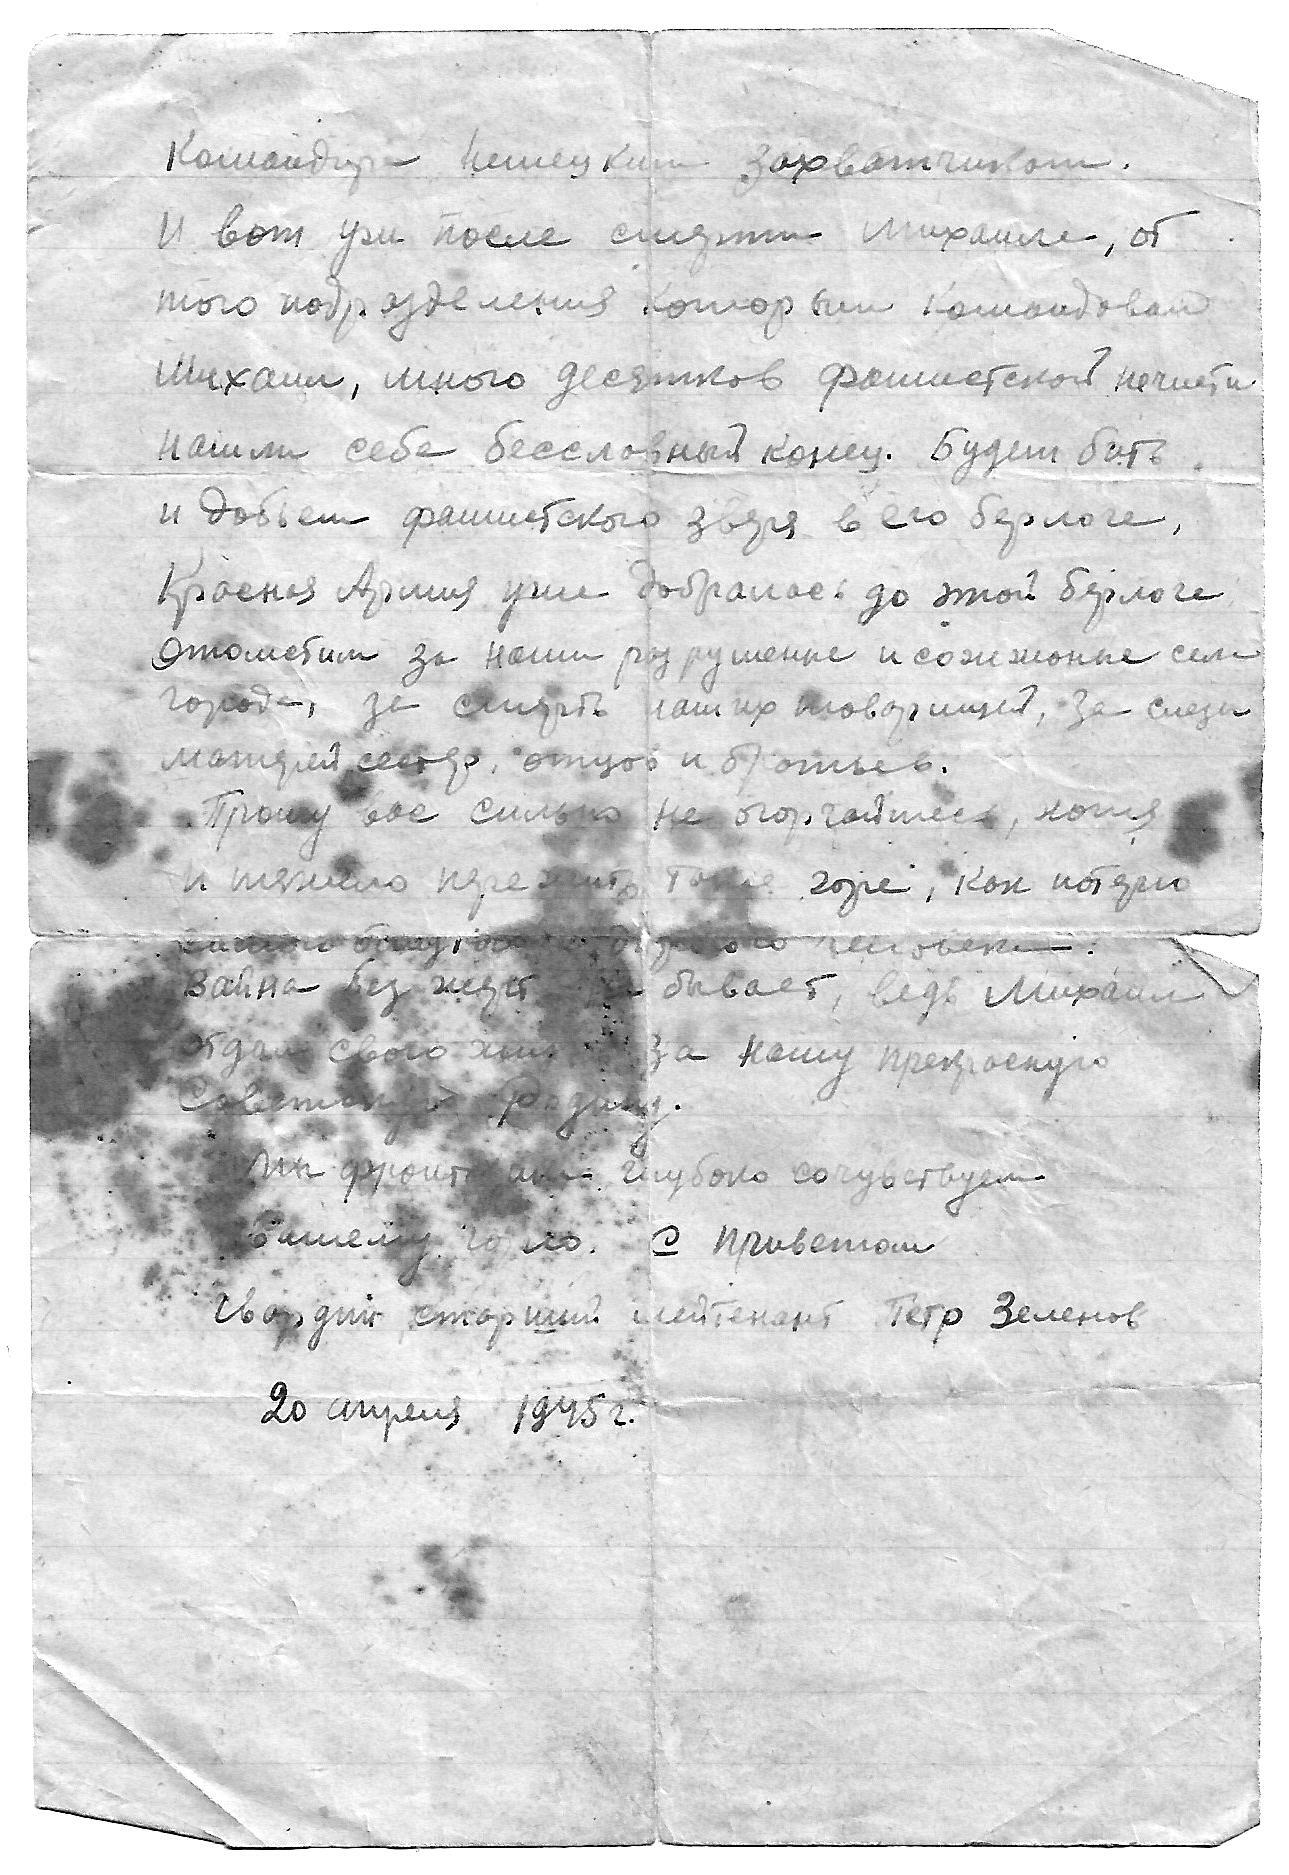 Командира немецким захватчикам.
И вот уже после смерти Михаила, от
того подразделения которым командовал
Михаил, много десятков фашистской нечисти
нашли себе бесславный конец. Будем бить
и добьем фашистского зверя в его берлоге,
Красная Армия уже добралась до этой берлоге
Отомстим за наши разрушеные и сожжоные села
города, за смерть наших товарищей, за слезы
матерей сестер, отцов и братьев.
Прошу вас сильно не огорчайтесь, хотя
и тяжело пережить такое горе, как потерю
человека.
Война без жерт бывает, ведь Михаил
отдал свою за нашу прекрасную
Советскую Родину.
Мы фронтовики глубоко сочувствуем
Вашему горю. С приветом
Гвардии старший лейтенант Петр Зеленов
20 апреля 1945 г.